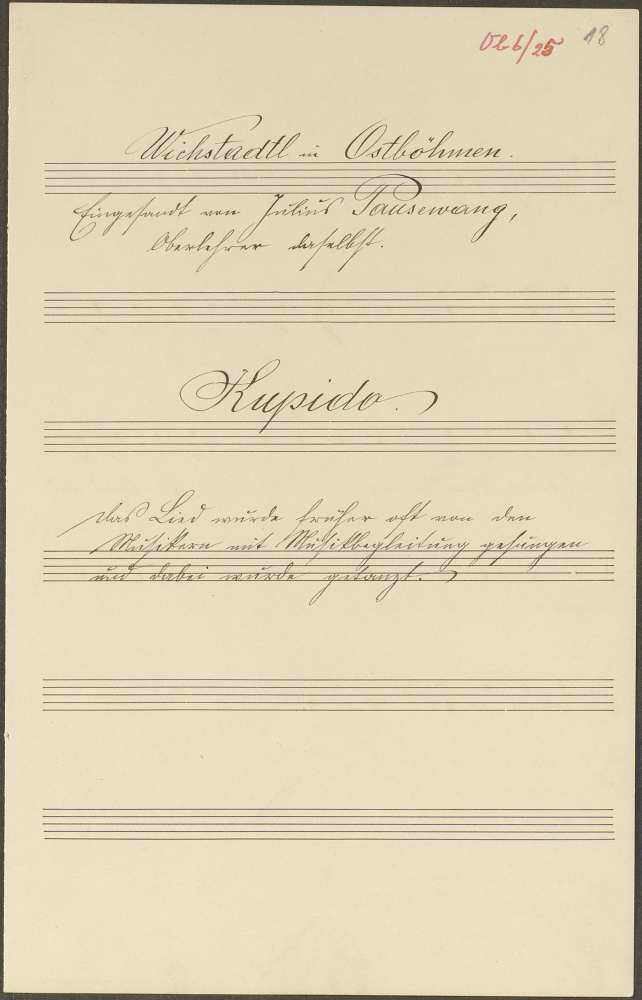 Ob 6/25 18
Wichstadtl in Ostböhmen.
Eingesandt von Julius Pausewang,
Oberlehrer daselbst.
Kupido.
Das Lied wurde früher oft von den
Musikern mit Musikbegleitung gesungen
und dabei wurde getanzt.